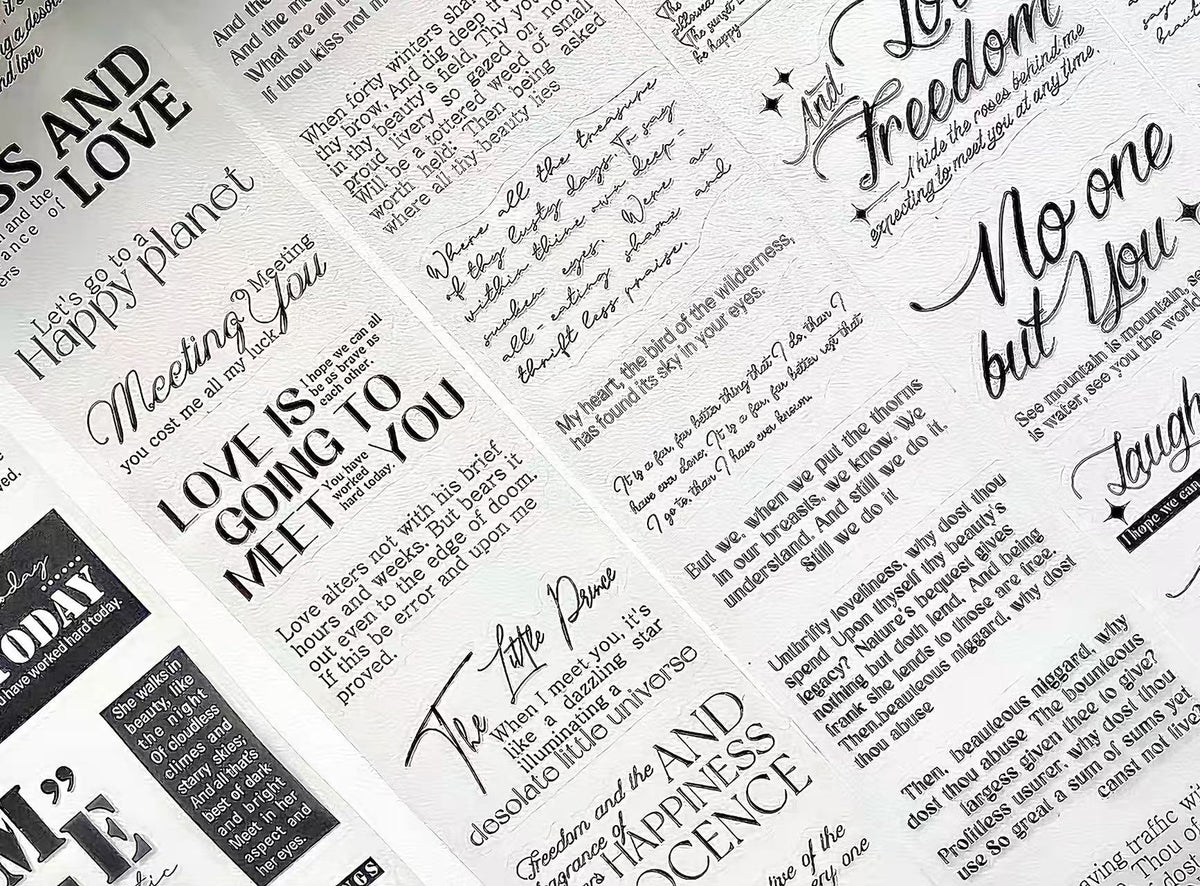 SS AND
LOVE
and the
of
Let's go to a
Happy planet
Meeting
Meeting You
you cost me all my luck
LOVE IS
I hope we can all
be as brave us
each other.
GOING TO
MEET
You have
worked
hard today.
YOU
Love alters not with his brief
hours and weeks. But bears it
out even to the edge of doom.
If this be error and upon me
proved.
TODAY
have worked hard today.
She walks in
beauty, like
the night
Of cloudless
climes and
starry skies,
And all that's
best of dark
and bright
Meet in her
aspect and
her eyes.
And the
What are all
If thou kiss not
When forty winters
thy brow, And dig deep
in thy beauty's field, Thy
proud livery so gazed on
Will be a tottered weed of small
worth held: Then being asked
where all thy beauty lies
Where all the treasure
of thy lusty days. To say
within thine own deep-
sunken eyes. Were an
all-eating shame and
thrift less praise.
My heart, the bird of the wilderness,
has found its sky in your eyes.
It is a far, far better thing that I do, than I
have ever done. It is a far, far better rest that
I go to, than I have ever known
But we, when we put the thorns
in our breasts, we know. We
understand. And still we do it.
Still we do it
The Little Prince
When I meet you, it's
like a dazzling star
illuminating a
desolate little universe
Freedom and the AND
HAPPINESS
OCENCE
of the
The sunset
be happy
And
Freedom
I hide the roses behind me
expecting to meet you at any time.
No one
but You
See mountain is mountain,
is water, see you the world
Laugh
I hope we can
Unthrifty loveliness, why dost thou
spend Upon thyself thy beauty's
legacy? Nature's bequest gives
nothing but doth lend, And being
frank she lends to those are free.
Then,beauteous niggard, why dost
thou abuse
Then, beauteous niggard, why
dost thou abuse The bounteous
largess given thee to give?
Profitless usurer, why dost thou
use So great a sum of sums yet
canst not live?